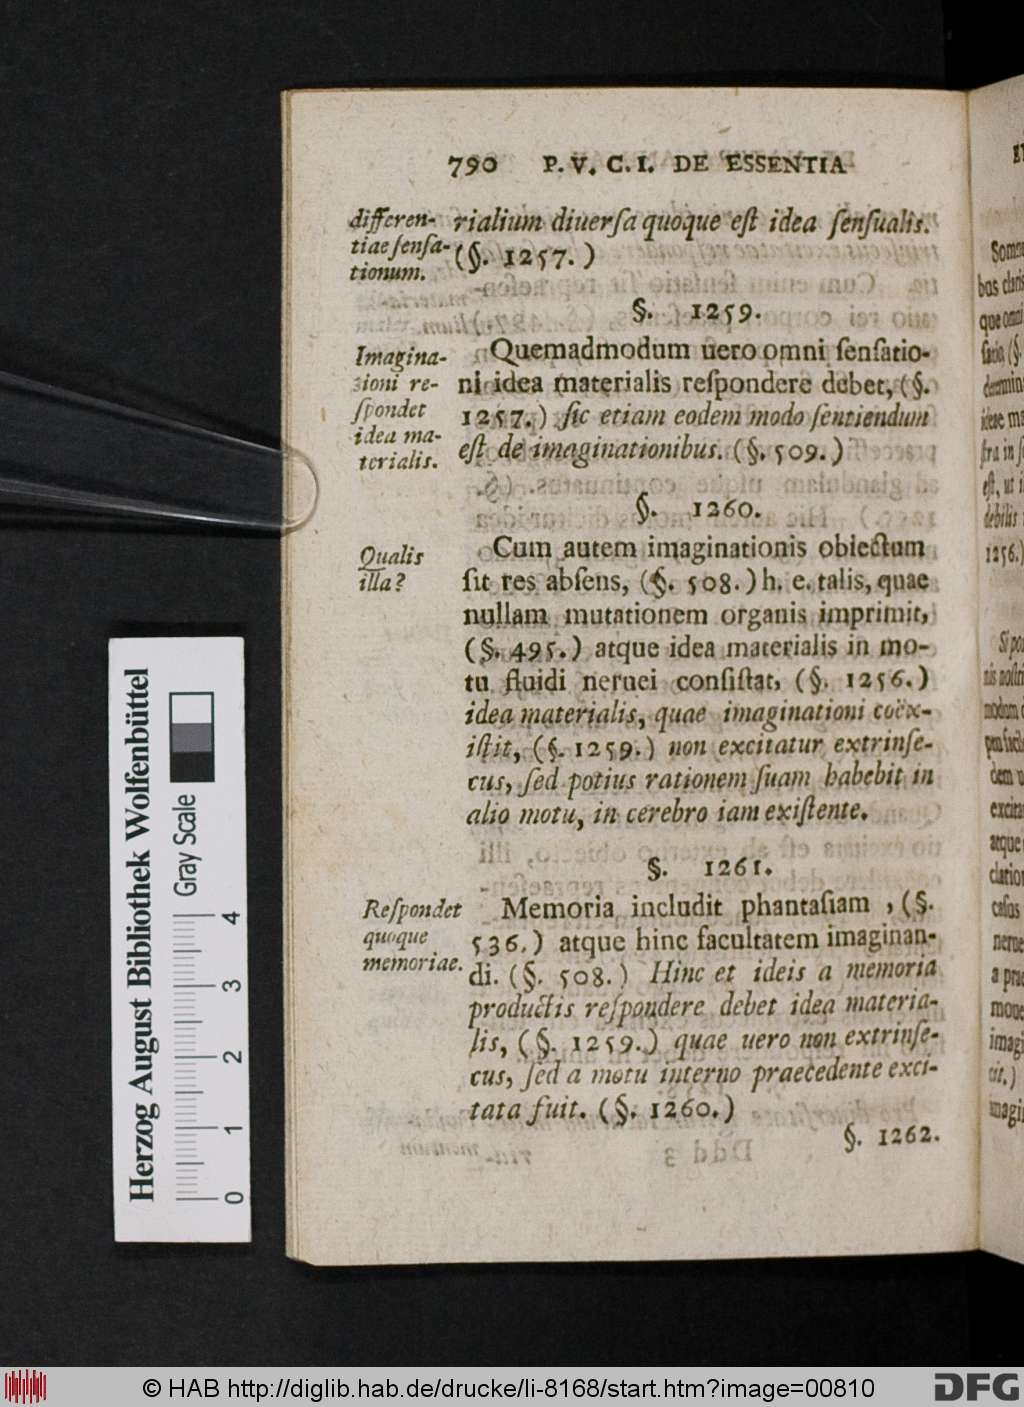 790 P. V. C. I. DE ESSENTIA
differen-
tiae ſenſa-
tionum.
rialium diuerſa quoque eſt idea ſenſualis.
(§. 1257.)
§. 1259.
Imagina-
tioni re-
ſpondet
idea ma-
terialis.
Quemadmodum uero omni ſenſatio-
ni idea materialis reſpondere debet, (§.
1257.) ſic etiam eodem modo ſentiendum
eſt de imaginationibus. (§. 509.)
§. 1260.
Qualis
illa?
Cum autem imaginationis obiectum
ſit res abſens, (§. 508.) h. e. talis, quae
nullam mutationem organis imprimit,
(§. 495.) atque idea materialis in mo-
tu fluidi neruei conſiſtat, (§. 1256.)
idea materialis, quae imaginationi coëx-
iſtit, (§. 1259.) non excitatur extrinſe-
cus, ſed potius rationem ſuam habebit in
alio motu, in cerebro iam exiſtente.
§. 1261.
Reſpondet
quoque
memoriae.
Memoria includit phantaſiam, (§.
536.) atque hinc facultatem imaginan-
di. (§. 508.) Hinc et ideis a memoria
productis reſpondere debet idea materia-
lis, (§. 1259.) quae uero non extrinſe-
cus, ſed a motu interno praecedente exci-
tata fuit. (§. 1260.)
§. 1262.
Herzog August Bibliothek Wolfenbüttel
Gray Scale
0 1 2 3 4
© HAB http://diglib.hab.de/drucke/li-8168/start.htm?image=00810
DFG